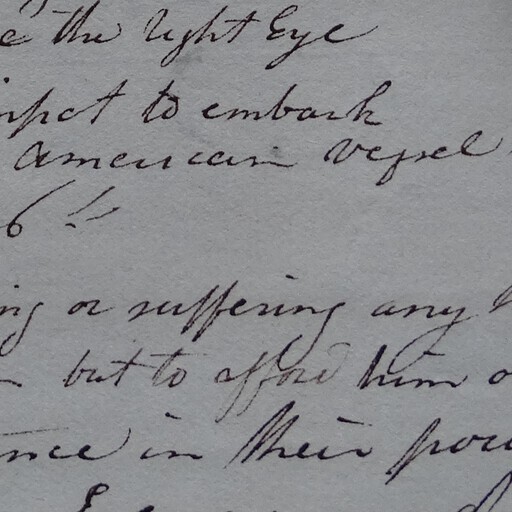 the right Eye
to embark
american vessel
6th
or suffering any
but to afford him
in their